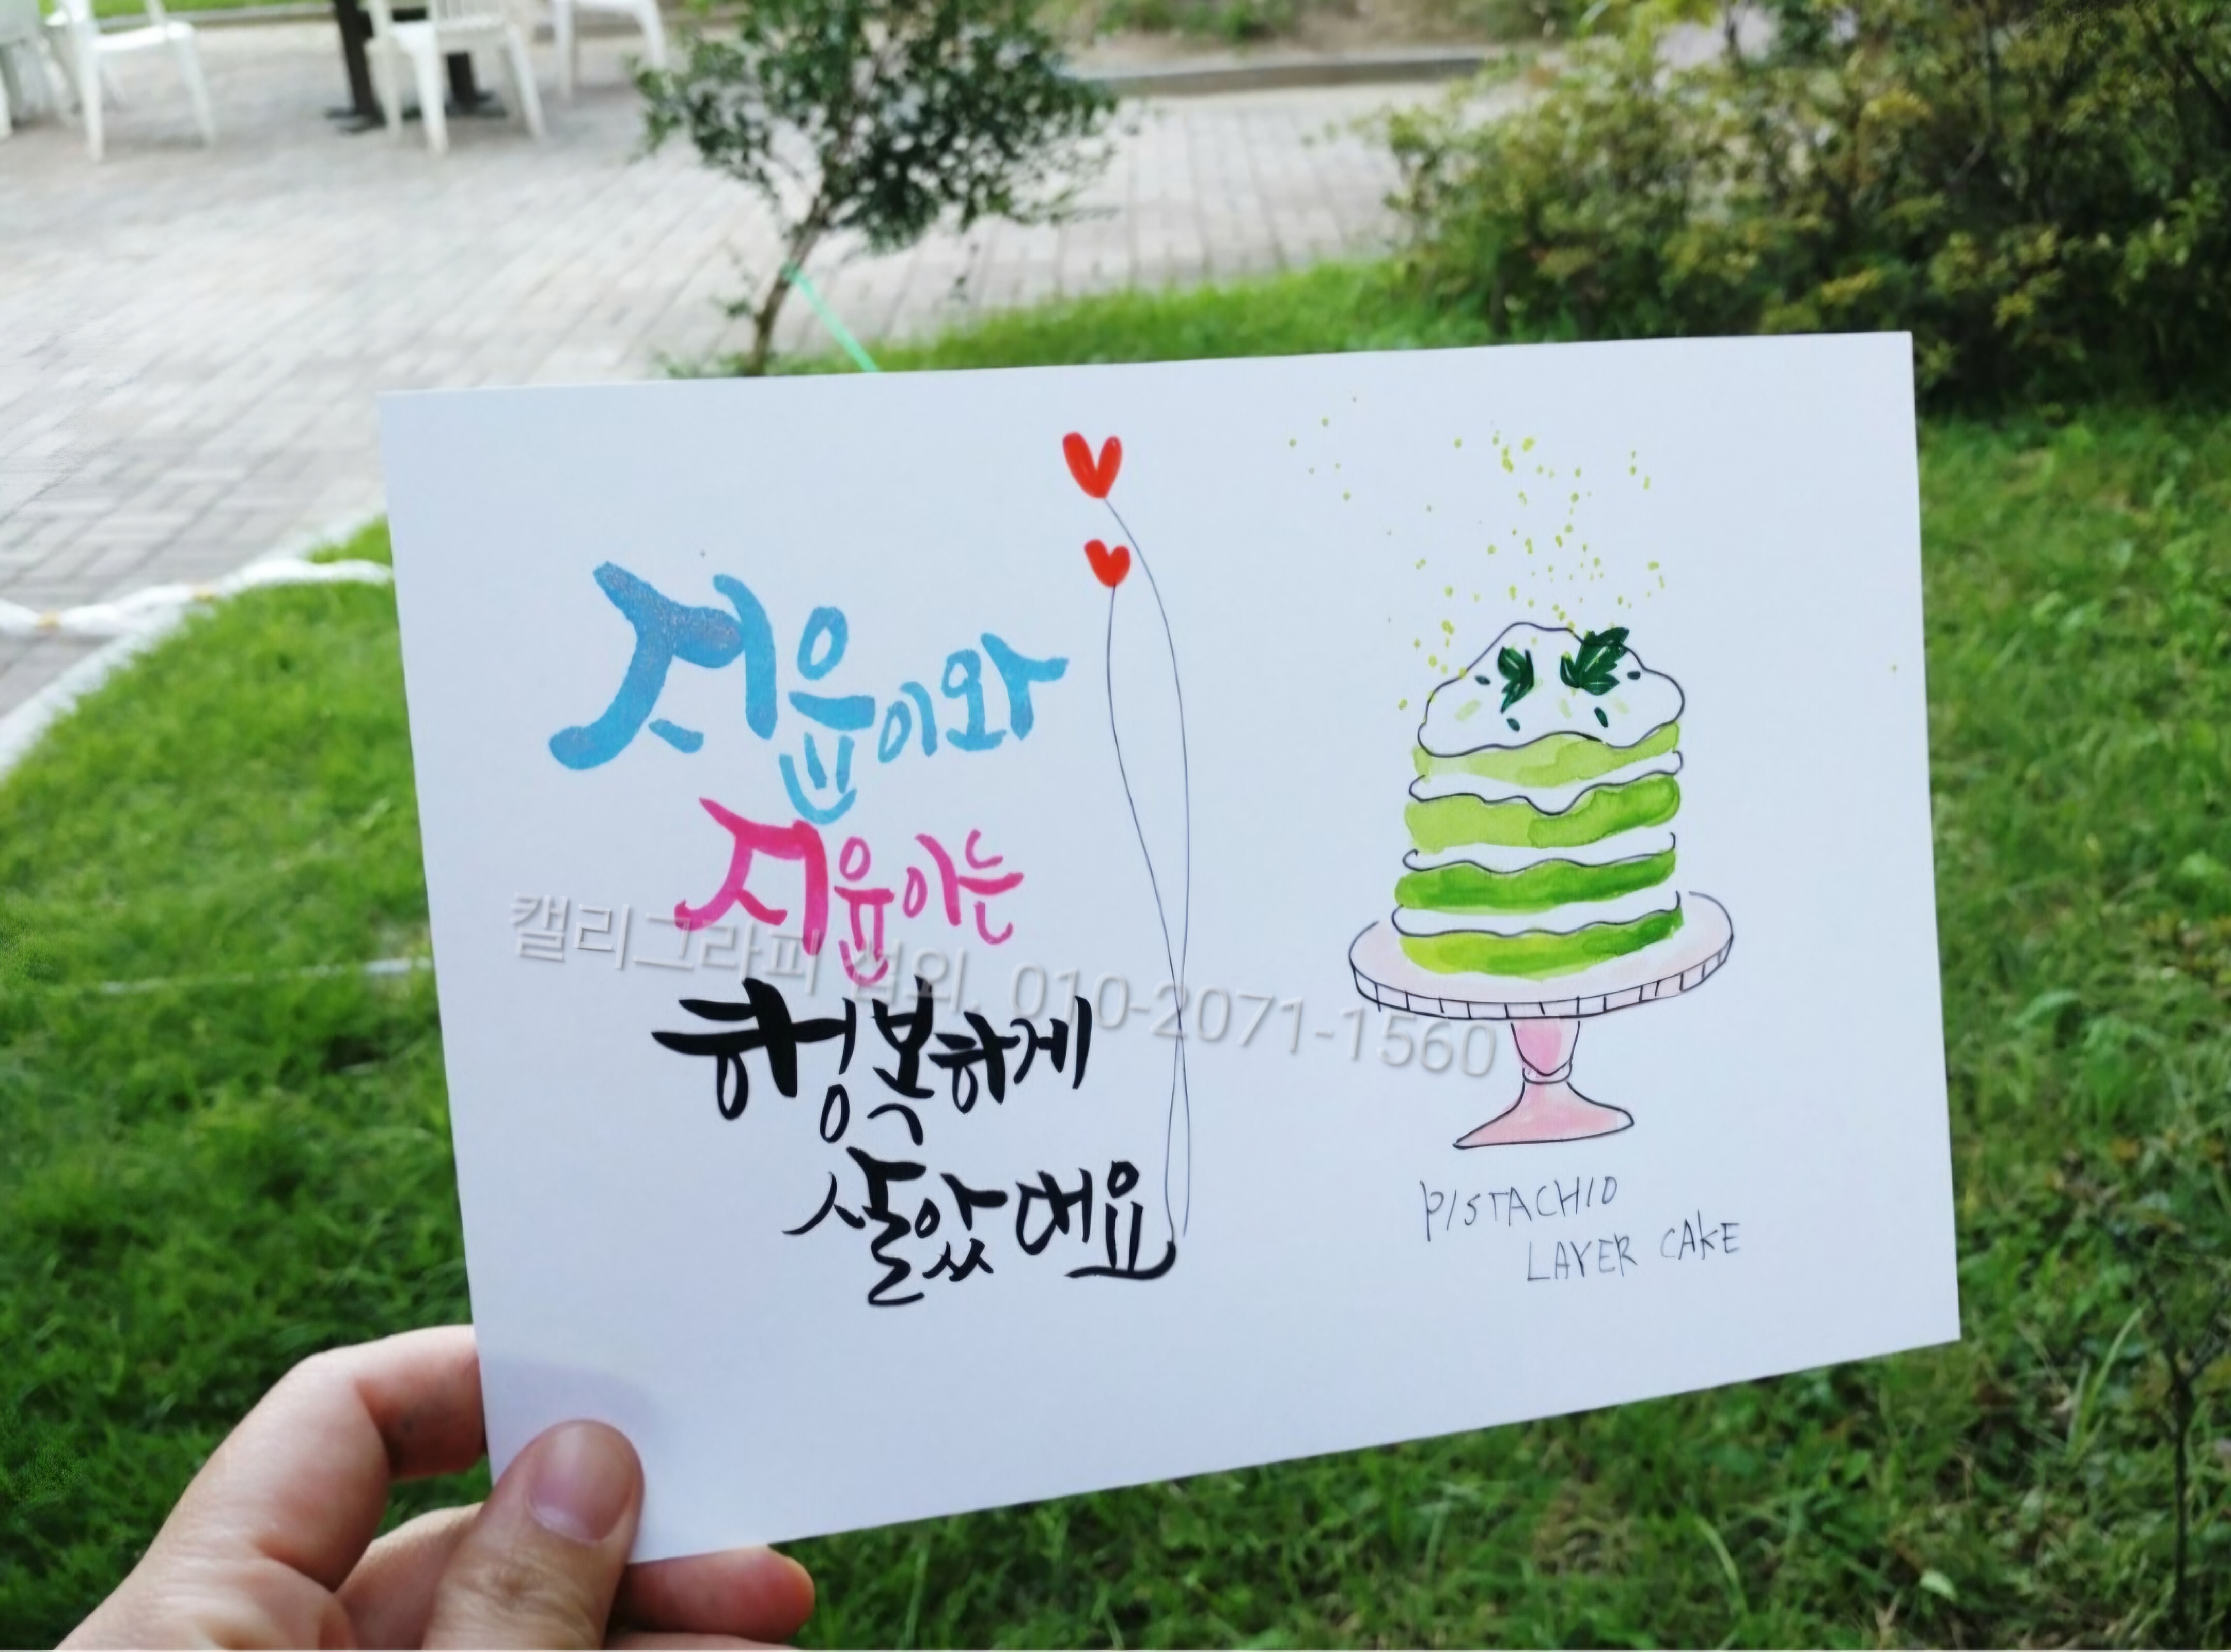 서윤이와
서유이는
행복하게
살았대요
캘리그라피 섭외. 010-2071-1560
PISTACHIO
LAYER CAKE